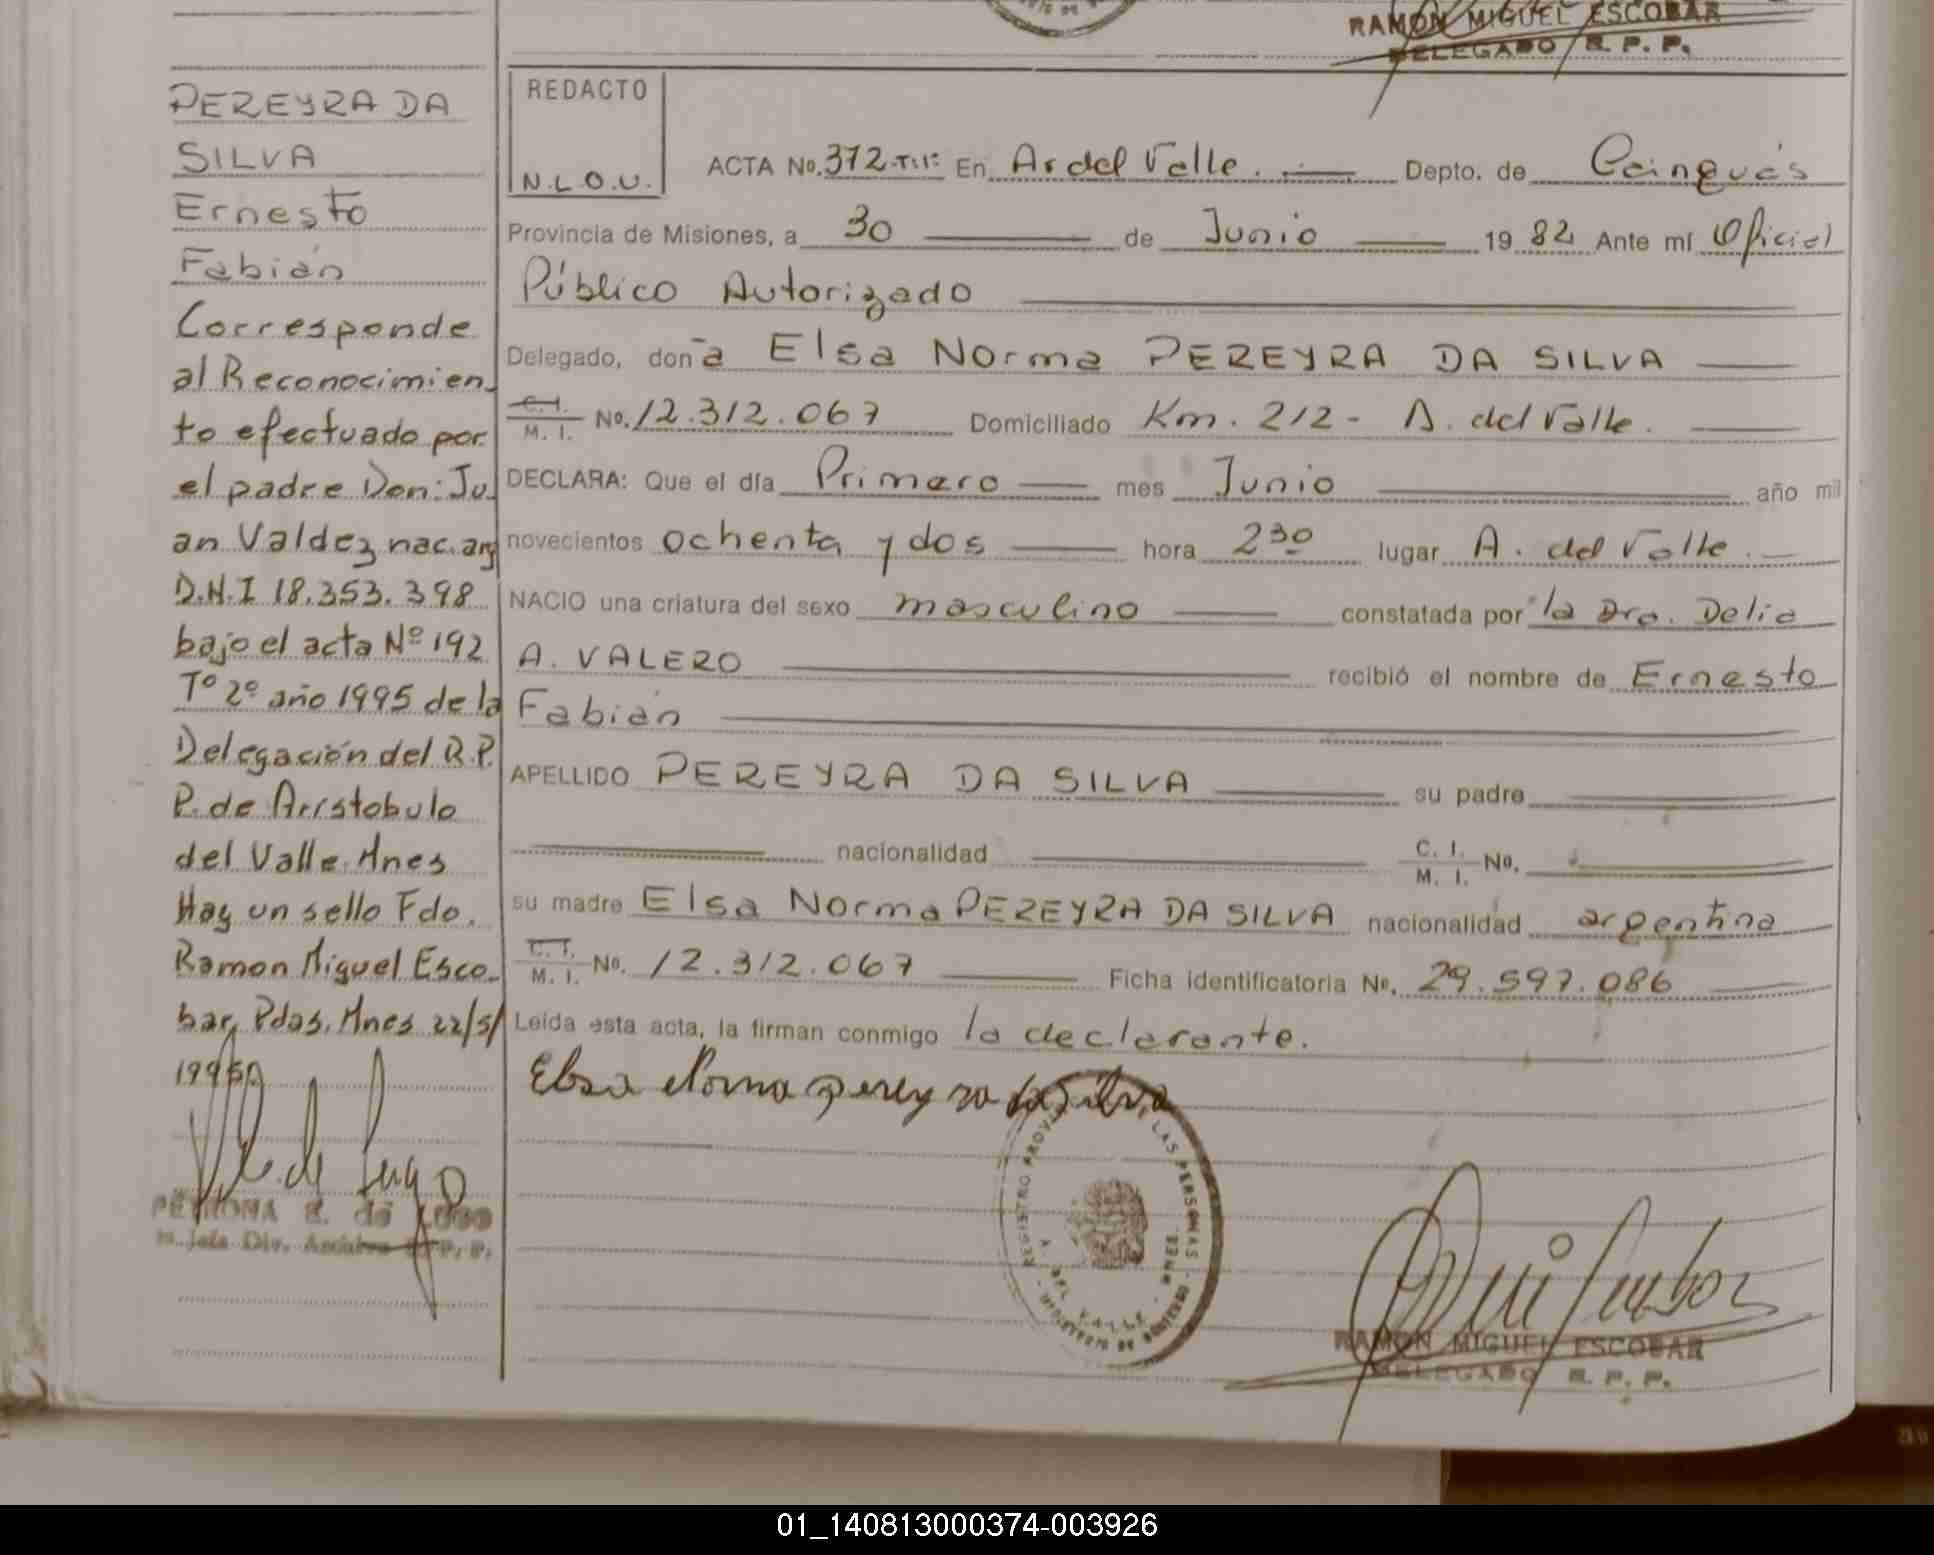 RAMON MIGUEL ESCOBAR
DELEGADO R. P. P.
PEREYRA DA
SILVA
Ernesto
Fabián
Corresponde
al Reconocimien
to efectuado por
el padre Don: Ju
an Valdez nac. arg
D.N.I 18.353.398
bajo el acta Nº 192
Tº 2º año 1995 de la
Delegación del R.P.
P. de Aristobulo
del Valle Mnes
Hay un sello Fdo.
Ramon Miguel Esco
bar, Pdas. Mnes 22/5/
1995
PETRONA E. de LUGO
Jefe Div. Archivo R. P. P.
REDACTO
N.L.O.U.
ACTA No. 372-T:1º En Ar del Valle. Depto. de Cainguás
Provincia de Misiones, a 30 de Junio 19 82 Ante mí Oficial
Público Autorizado
Delegado, don-a Elsa Norma PEREYRA DA SILVA
C. I. / M. I. No. 12.312.067 Domiciliado Km. 212 - A. del Valle.
DECLARA: Que el día Primero mes Junio año mil
novecientos ochenta y dos hora 2³⁰ lugar A. del Valle.
NACIO una criatura del sexo masculino constatada por la Dra. Delia
A. VALERO recibió el nombre de Ernesto
Fabián
APELLIDO PEREYRA DA SILVA su padre
nacionalidad C. I. / M. I. No.
su madre Elsa Norma PEREYRA DA SILVA nacionalidad argentina
C. I. / M. I. No. 12.312.067 Ficha identificatoria No. 29.597.086
Leída esta acta, la firman conmigo la declarante.
Elsa Norma pereyra da Silva
REGISTRO PROV LAS PERSONAS
MINISTERIO DE GOBIERNO
A. DEL VALLE - MNES.
RAMON MIGUEL ESCOBAR
DELEGADO R. P. P.
01_140813000374-003926